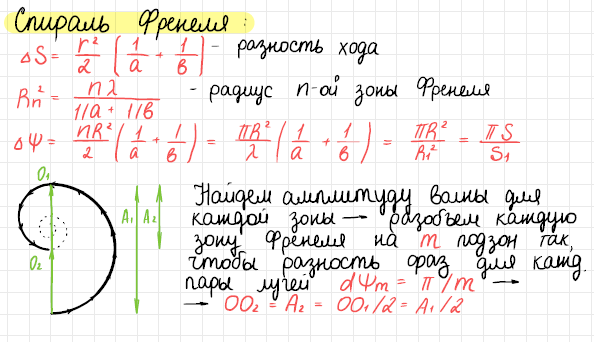 Спираль Френеля:
ΔS = r²/2 (1/a + 1/b) - разность хода
Rn² = nλ/(1/a + 1/b) - радиус n-ой зоны Френеля
ΔΨ = nR²/2 (1/a + 1/b) = πR²/λ (1/a + 1/b) = πR²/R₁² = πS/S₁
O₁
O₂
A₁ A₂
Найдем амплитуду волны для
каждой зоны → разобьем каждую
зону Френеля на m подзон так,
чтобы разность фраз для кажд.
пары лучей dΨm = π/m →
→ OO₂ = A₂ = OO₁/2 = A₁/2